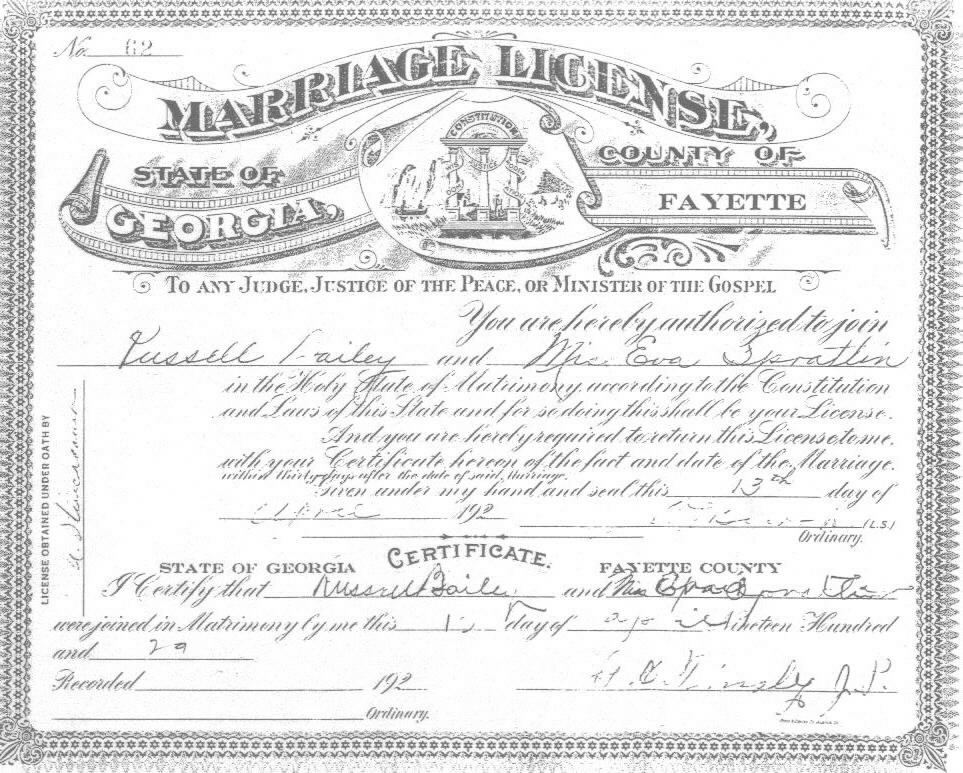 No. 62
MARRIAGE LICENSE,
CONSTITUTION
STATE OF
GEORGIA,
COUNTY OF
FAYETTE
TO ANY JUDGE, JUSTICE OF THE PEACE, OR MINISTER OF THE GOSPEL
You are hereby authorized to join
Russell Bailey and Miss Eva Spratlin
in the Holy State of Matrimony, according to the Constitution
and Laws of this State and for so doing this shall be your License.
And you are hereby required to return this License to me,
with your Certificate hereon of the fact and date of the Marriage.
within thirty days after the date of said marriage.
Given under my hand and seal this 13th day of
April 192 (L.S.)
Ordinary.
LICENSE OBTAINED UNDER OATH BY
CERTIFICATE.
STATE OF GEORGIA FAYETTE COUNTY
I Certify that Russell Bailey and Miss Eva Spratlin
were joined in Matrimony by me this day of April Nineteen Hundred
and 29
Recorded 192 J.P.
Ordinary.